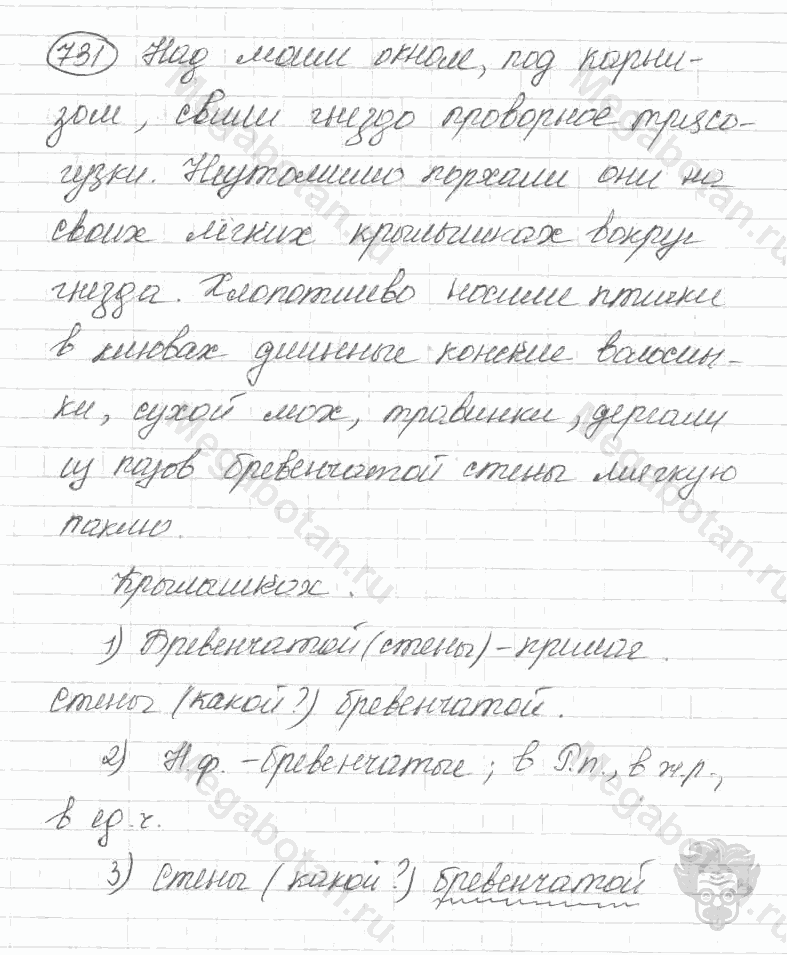 731 Над моим окном, под карни-
зом, свили гнездо проворное трясо-
гузки. Неутомимо порхали они на
своих лёгких крылышках вокруг
гнезда. Хлопотливо носили птички
в клювах длинные конские волосин-
ки, сухой мох, травинки, дергали
из пазов бревенчатой стены мягкую
паклю.
Крылашках.
1) Бревенчатой (стены) - прилаг.
Стены (какой?) бревенчатой.
2) Н.ф. - бревенчатые; в Р.п., в ж.р.,
в ед.ч.
3) Стены (какой?) бревенчатой
Megabotan.ru
Megabotan.ru
Megabotan.ru
Megabotan.ru
Megabotan.ru
Megabotan.ru